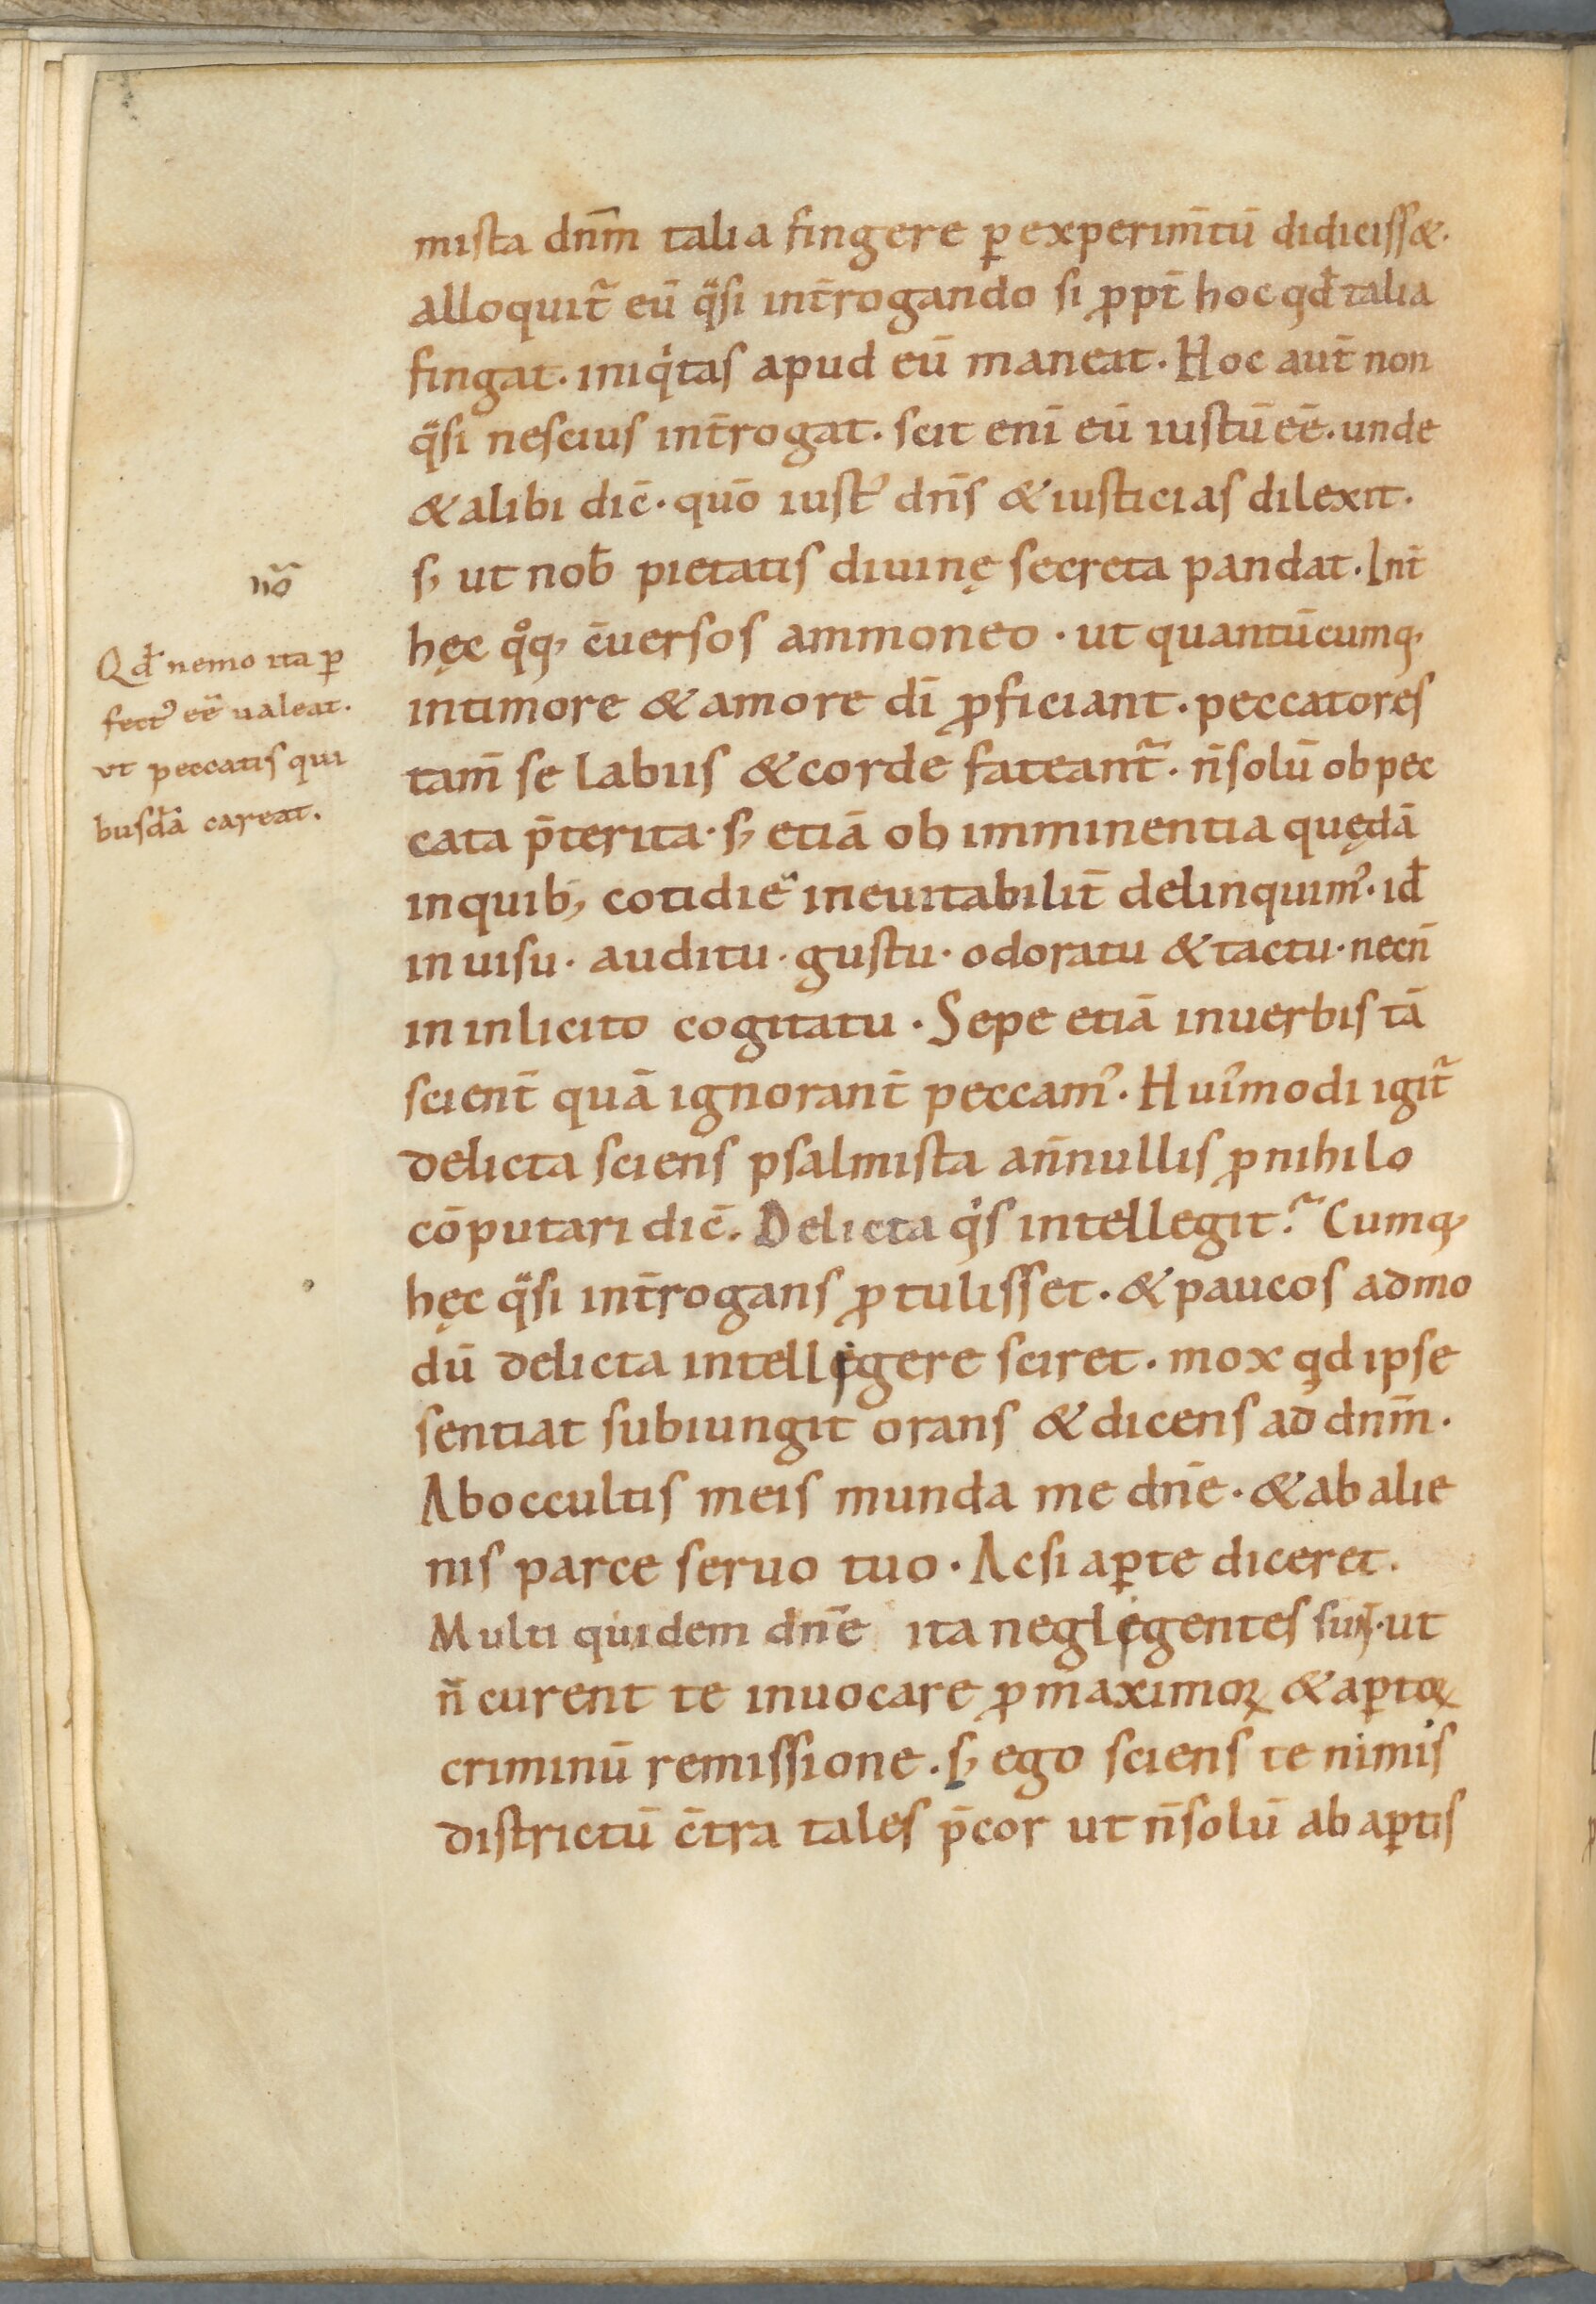 mista dnm̄ talia fingere ꝑ experim̄tū didiciss&.
alloquit᷑ eū qͣsi int̄rogando si ꝓpt̄ hoc qđ talia
fingat. iniqͥtas apud eū maneat. Hoc aut̄ non
qͣsi nescius int̄rogat. scit enī eū iustū eē. unde
& alibi dic̄. quō iustꝰ dn̄s & iusticias dilexit.
s; ut nob̄ pietatis diuinę secreta pandat. Int̄
hęc qͦq; c̄uersos ammoneo. ut quantūcumq;
in timore & amore dī ꝓficiant. peccatores
tam̄ se labiis & corde fateant᷑. n̄ solū ob pec
cata p̄terita. s; etiā ob imminentia quędā
in quib; cotidie ineuitabilit̄ delinquimꝰ. id̄
in uisu. auditu. gustu. odoratu & tactu. necn̄
in inlicito cogitatu. Sepe etiā in uerbis tā
scient̄ quā ignorant̄ peccamꝰ. Huim̄odi igit᷑
delicta sciens psalmista a n̄nullis ꝓ nihilo
cōputari dic̄. Delicta qͥs intellegit? Cumq;
hęc qͣsi int̄rogans ꝓtulisset. & paucos admo
dū delicta intelligere sciret. mox qd ipse
sentiat subiungit orans & dicens ad dnm̄.
Ab occultis meis munda me dn̄e. & ab alie
nis parce seruo tuo. Acsi aꝑte diceret.
Multi quidem dn̄e ita negligentes sunt. ut
n̄ curent te inuocare ꝓ maximoꝝ & aꝑtoꝝ
criminū remissione. s; ego sciens te nimis
districtū c̄tra tales p̄cor ut n̄ solū ab aꝑtis
Qđ nemo ita ꝑ
fectꝰ eē ualeat.
ut peccatis qui
busdā careat.